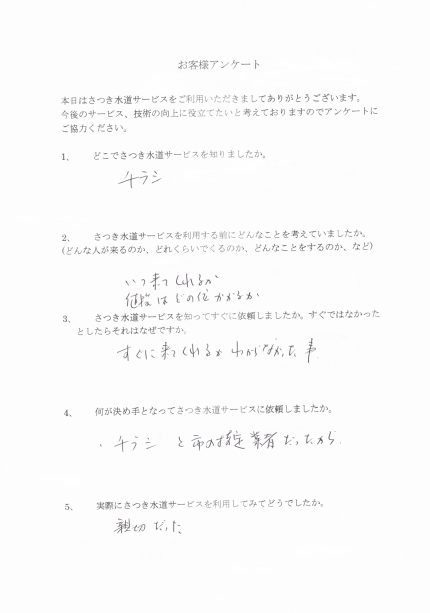 お客様アンケート
本日はさつき水道サービスをご利用いただきましてありがとうございます。
今後のサービス、技術の向上に役立てたいと考えておりますのでアンケートに
ご協力ください。
1、 どこでさつき水道サービスを知りましたか。
チラシ
2、 さつき水道サービスを利用する前にどんなことを考えていましたか。
(どんな人が来るのか、どれくらいでくるのか、どんなことをするのか、など)
いつ来てくれるか
値段はどの位かかるか
3、 さつき水道サービスを知ってすぐに依頼しましたか。すぐではなかった
としたらそれはなぜですか。
すぐに来てくれるかわからなかった事
4、 何が決め手となってさつき水道サービスに依頼しましたか。
・チラシと市の指定業者だったから。
5、 実際にさつき水道サービスを利用してみてどうでしたか。
親切だった